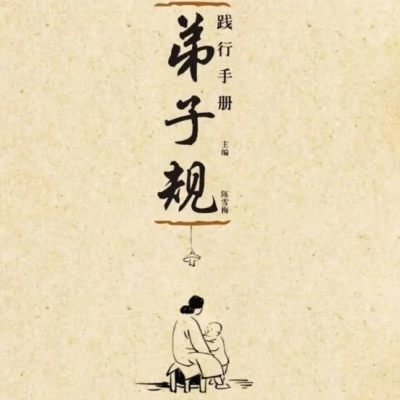 弟子规
践行手册
主编
陈雪梅